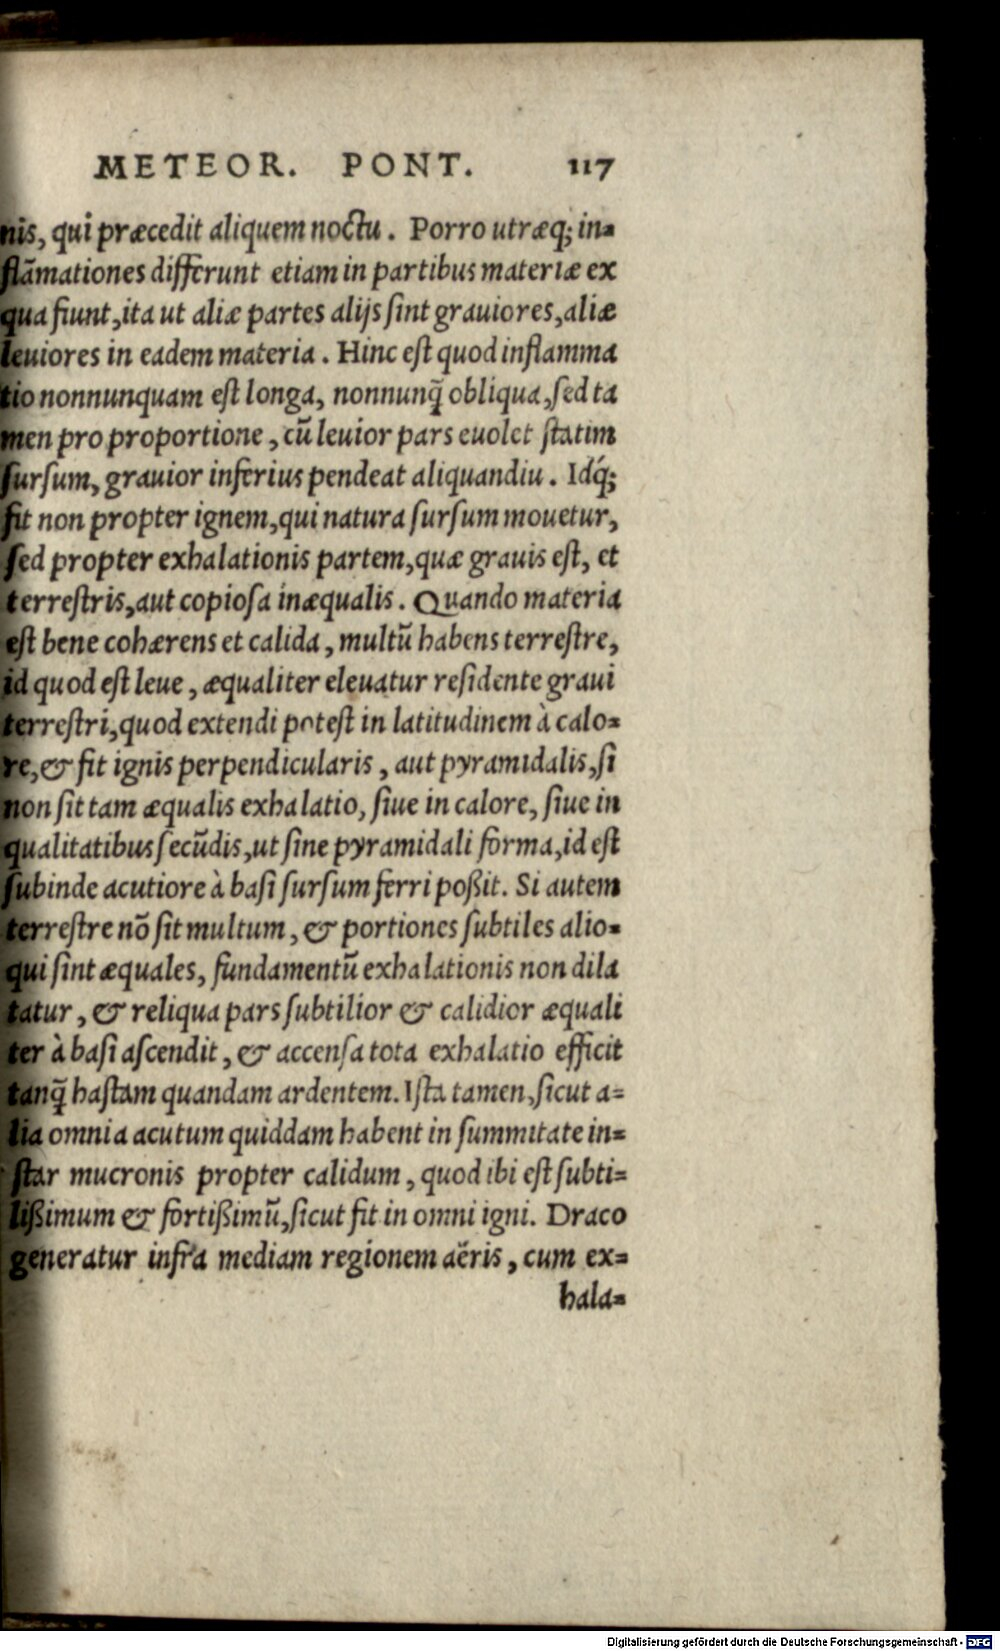 METEOR. PONT. 117
nis, qui præcedit aliquem noctu. Porro utræq; in=
flāmationes differunt etiam in partibus materiæ ex
qua fiunt, ita ut aliæ partes alijs sint grauiores, aliæ
leuiores in eadem materia. Hinc est quod inflamma
tio nonnunquam est longa, nonnunq̃ obliqua, sed ta
men pro proportione, cū leuior pars euolet statim
sursum, grauior inferius pendeat aliquandiu. Idq́;
fit non propter ignem, qui natura sursum mouetur,
sed propter exhalationis partem, quæ grauis est, et
terrestris, aut copiosa inæqualis. Quando materia
est bene cohærens et calida, multū habens terrestre,
id quod est leue, æqualiter eleuatur residente graui
terrestri, quod extendi potest in latitudinem à calo=
re, & fit ignis perpendicularis, aut pyramidalis, si
non sit tam æqualis exhalatio, siue in calore, siue in
qualitatibus secūdis, ut sine pyramidali forma, id est
subinde acutiore à basi sursum ferri poßit. Si autem
terrestre nō sit multum, & portiones subtiles alio=
qui sint æquales, fundamentū exhalationis non dila
tatur, & reliqua pars subtilior & calidior æquali
ter à basi ascendit, & accensa tota exhalatio efficit
tanq̃ hastam quandam ardentem. Ista tamen, sicut a=
lia omnia acutum quiddam habent in summitate in=
star mucronis propter calidum, quod ibi est subti=
lißimum & fortißimū, sicut fit in omni igni. Draco
generatur infra mediam regionem aëris, cum ex=
hala=
Digitalisierung gefördert durch die Deutsche Forschungsgemeinschaft - DFG